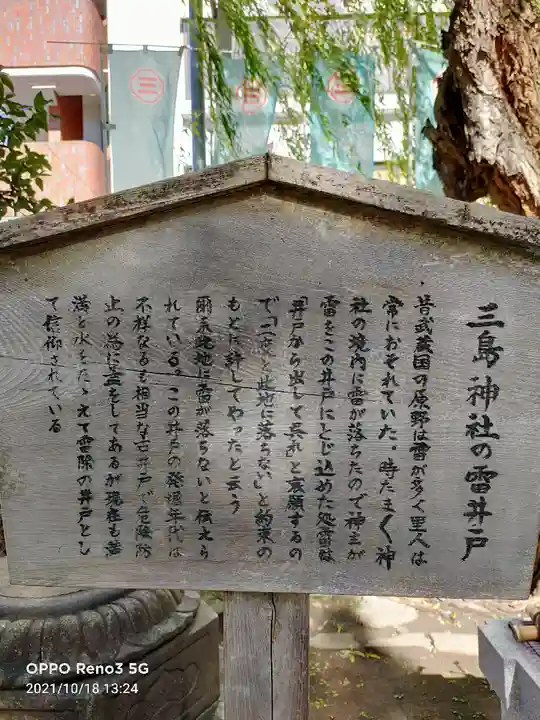 三島神社の雷井戸
昔武蔵国の原野は雷が多く里人は
常におそれていた。時たまく神
社の境内に雷が落ちたので神主が
雷をこの井戸にとじ込めた処雷は
「井戸から出して呉れと哀願するの
で「二度と此地に落ちない」と約束の
もとに許してやったと云う
爾来此地に雷が落ちないと伝えら
れている。この井戸の発掘年代は
不祥なるも相当な古井戸で危険防
止の為に蓋をしてあるが現在も
満々水をたゝえて雷除の井戸とし
て信仰されている
OPPO Reno3 5G
2021/10/18 13:24